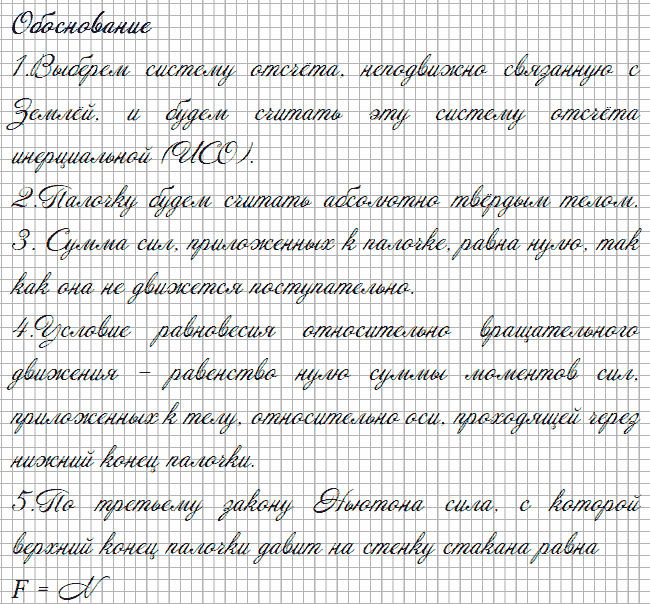 Обоснование
1.Выберем систему отсчёта, неподвижно связанную с
Землёй, и будем считать эту систему отсчёта
инерциальной (ИСО).
2.Палочку будем считать абсолютно твёрдым телом.
3. Сумма сил, приложенных к палочке, равна нулю, так
как она не движется поступательно.
4.Условие равновесия относительно вращательного
движения – равенство нулю суммы моментов сил,
приложенных к телу, относительно оси, проходящей через
нижний конец палочки.
5.По третьему закону Ньютона сила, с которой
верхний конец палочки давит на стенку стакана равна
F = N